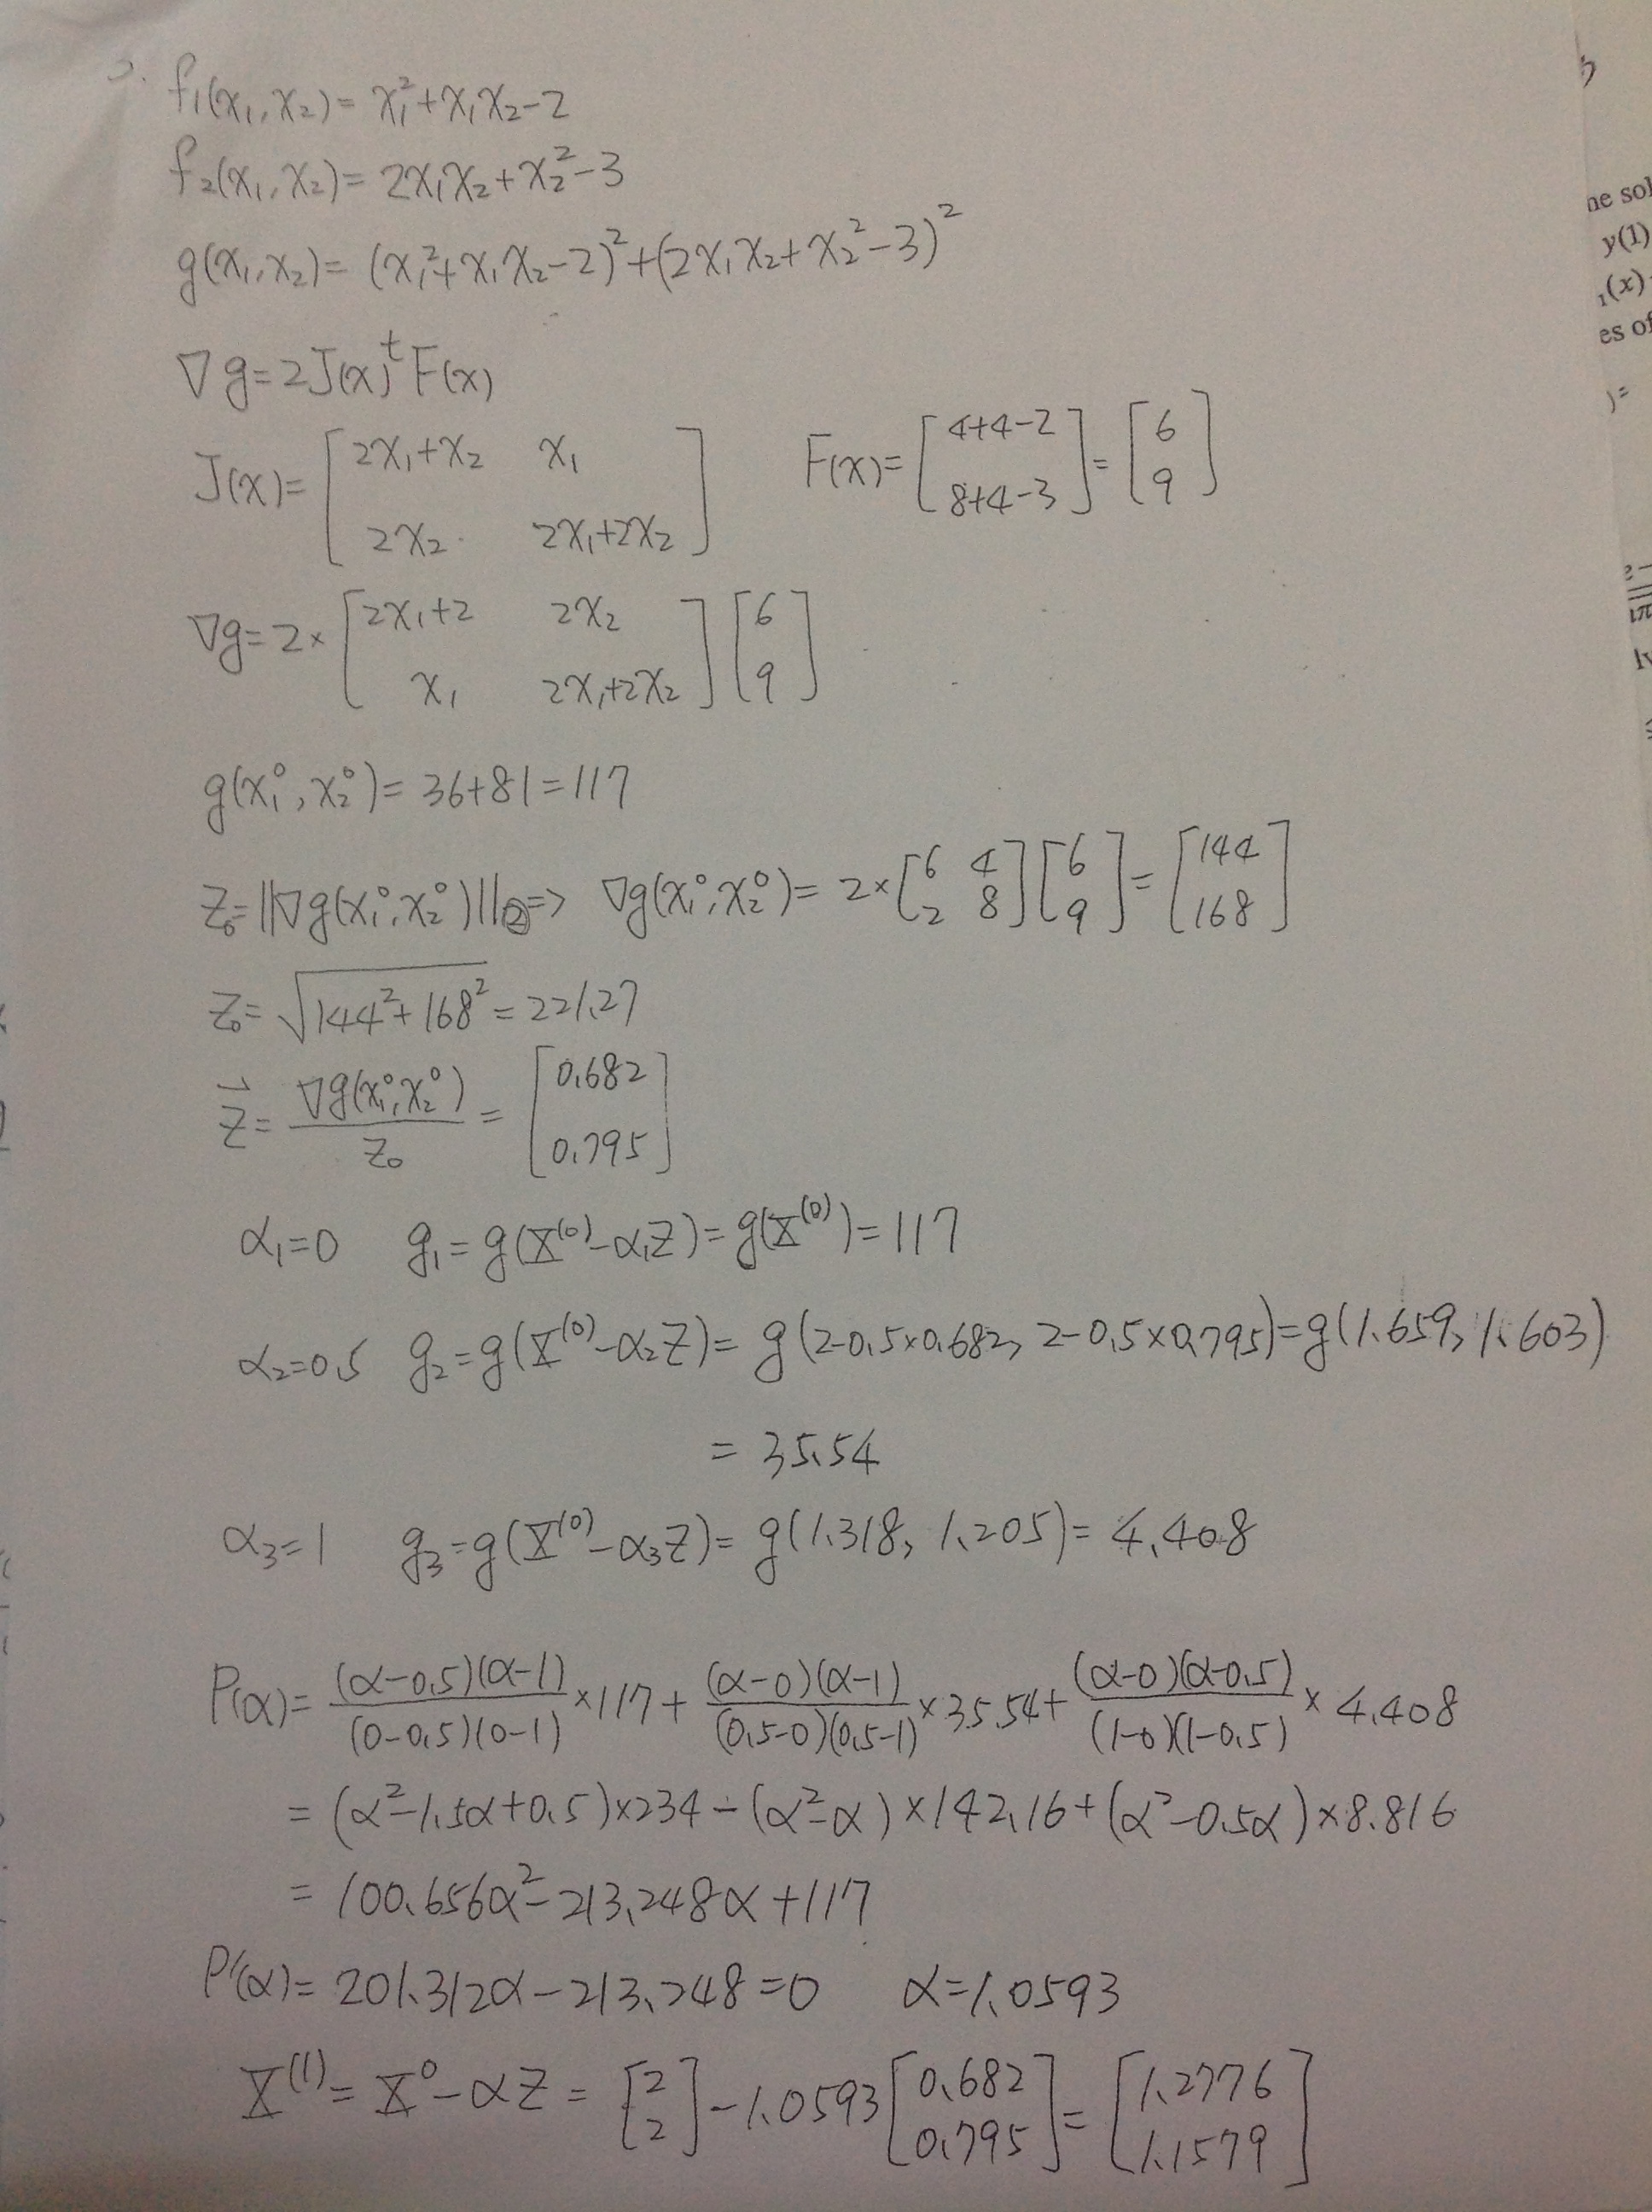 3.
f₁(x₁, x₂) = x₁² + x₁x₂ - 2
f₂(x₁, x₂) = 2x₁x₂ + x₂² - 3
g(x₁, x₂) = (x₁² + x₁x₂ - 2)² + (2x₁x₂ + x₂² - 3)²
∇g = 2J(x)ᵗF(x)
J(x) = [2x₁+x₂  x₁; 2x₂  2x₁+2x₂]  F(x) = [4+4-2; 8+4-3] = [6; 9]
∇g = 2× [2x₁+2  2x₂; x₁  2x₁+2x₂] [6; 9]
g(x₁⁰, x₂⁰) = 36+81 = 117
Z₀ = ||∇g(x₁⁰, x₂⁰)||₂ => ∇g(x₁⁰, x₂⁰) = 2× [6 4; 2 8] [6; 9] = [144; 168]
Z₀ = √(144² + 168²) = 221.27
Z⃗ = ∇g(x₁⁰, x₂⁰) / Z₀ = [0.682; 0.795]
α₁=0  g₁ = g(X⁽⁰⁾ - α₁Z) = g(X⁽⁰⁾) = 117
α₂=0.5  g₂ = g(X⁽⁰⁾ - α₂Z) = g(2-0.5×0.682, 2-0.5×0.795) = g(1.659, 1.603)
= 35.54
α₃=1  g₃ = g(X⁽⁰⁾ - α₃Z) = g(1.318, 1.205) = 4.408
P(α) = (α-0.5)(α-1) / (0-0.5)(0-1) ×117 + (α-0)(α-1) / (0.5-0)(0.5-1) ×35.54 + (α-0)(α-0.5) / (1-0)(1-0.5) × 4.408
= (α² - 1.5α + 0.5)×234 - (α² - α)×142.16 + (α² - 0.5α)×8.816
= 100.656α² - 213.248α + 117
P'(α) = 201.312α - 213.248 = 0  α = 1.0593
X⁽¹⁾ = X⁰ - αZ = [2; 2] - 1.0593 [0.682; 0.795] = [1.2776; 1.1579]
y(1)
es of